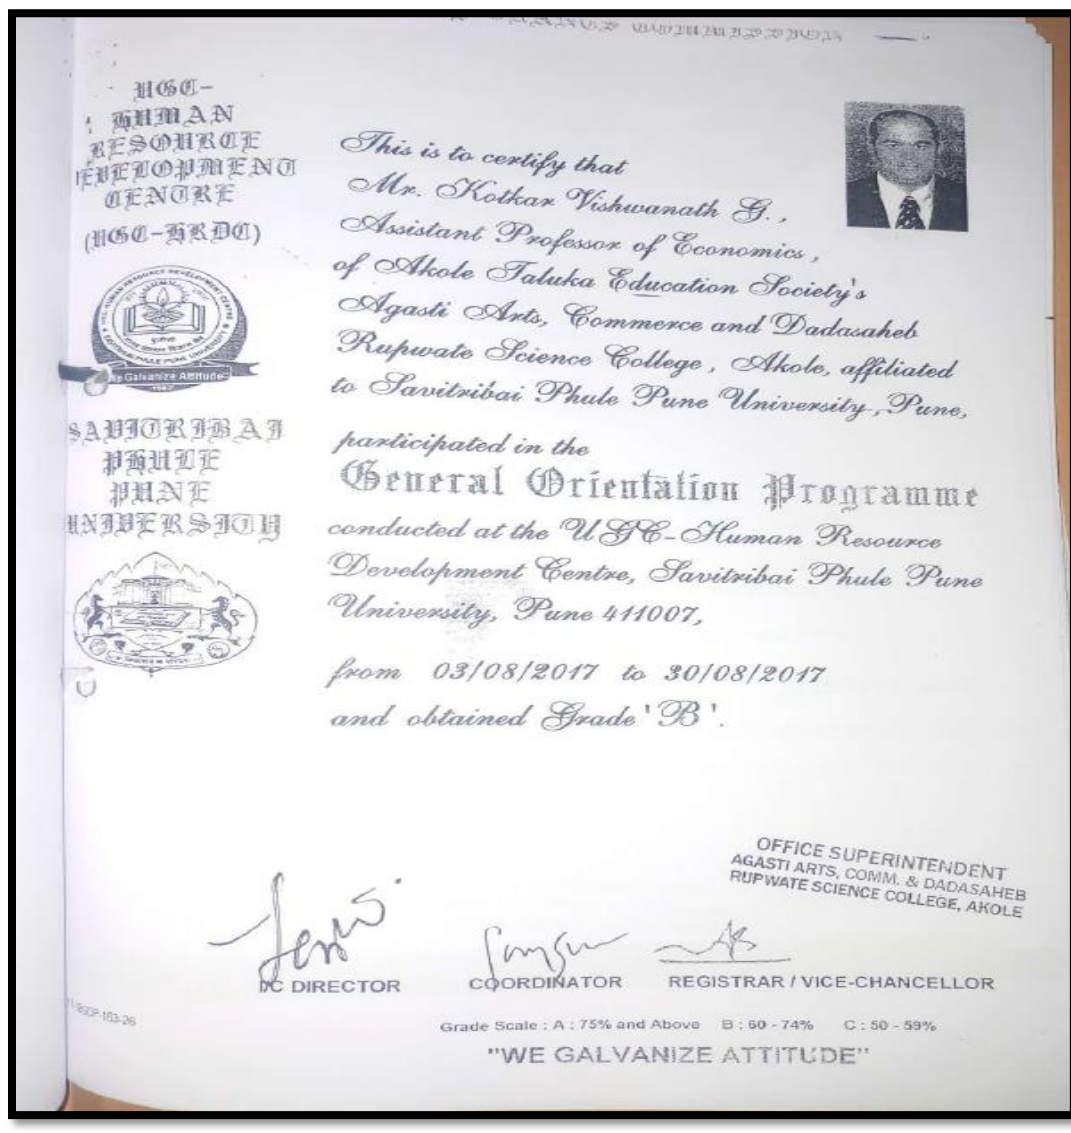 UGC-
HUMAN
RESOURCE
DEVELOPMENT
CENTRE
(UGC-HRDC)
We Galvanize Attitude
SAVITRIBAI
PHULE
PUNE
UNIVERSITY
This is to certify that
Mr. Kotkar Vishwanath G.,
Assistant Professor of Economics,
of Akole Taluka Education Society's
Agasti Arts, Commerce and Dadasaheb
Rupwate Science College, Akole, affiliated
to Savitribai Phule Pune University, Pune,
participated in the
General Orientation Programme
conducted at the UGC-Human Resource
Development Centre, Savitribai Phule Pune
University, Pune 411007,
from 03/08/2017 to 30/08/2017
and obtained Grade 'B'.
OFFICE SUPERINTENDENT
AGASTI ARTS, COMM. & DADASAHEB
RUPWATE SCIENCE COLLEGE, AKOLE
I/C DIRECTOR
COORDINATOR
REGISTRAR / VICE-CHANCELLOR
-163-26
Grade Scale : A : 75% and Above B : 60 - 74% C : 50 - 59%
"WE GALVANIZE ATTITUDE"